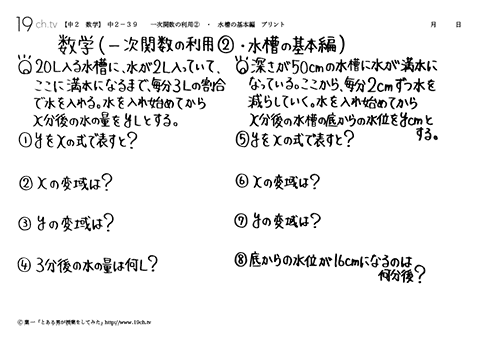 19ch.tv 【中2 数学】 中2-39 一次関数の利用② ・ 水槽の基本編 プリント 月 日
数学(一次関数の利用②・水槽の基本編)
Q 20L入る水槽に、水が2L入っていて、
ここに満水になるまで、毎分3Lの割合
で水を入れる。水を入れ始めてから
x分後の水の量をyLとする。
①yをxの式で表すと?
② xの変域は?
③ yの変域は?
④ 3分後の水の量は何L?
Q 深さが50cmの水槽に水が満水に
なっている。ここから、毎分2cmずつ水を
減らしていく。水を入れ始めてから
x分後の水槽の底からの水位をycmと
する。
⑤yをxの式で表すと?
⑥ xの変域は?
⑦ yの変域は?
⑧底からの水位が16cmになるのは
何分後?
© 葉一「とある男が授業をしてみた」http://www.19ch.tv